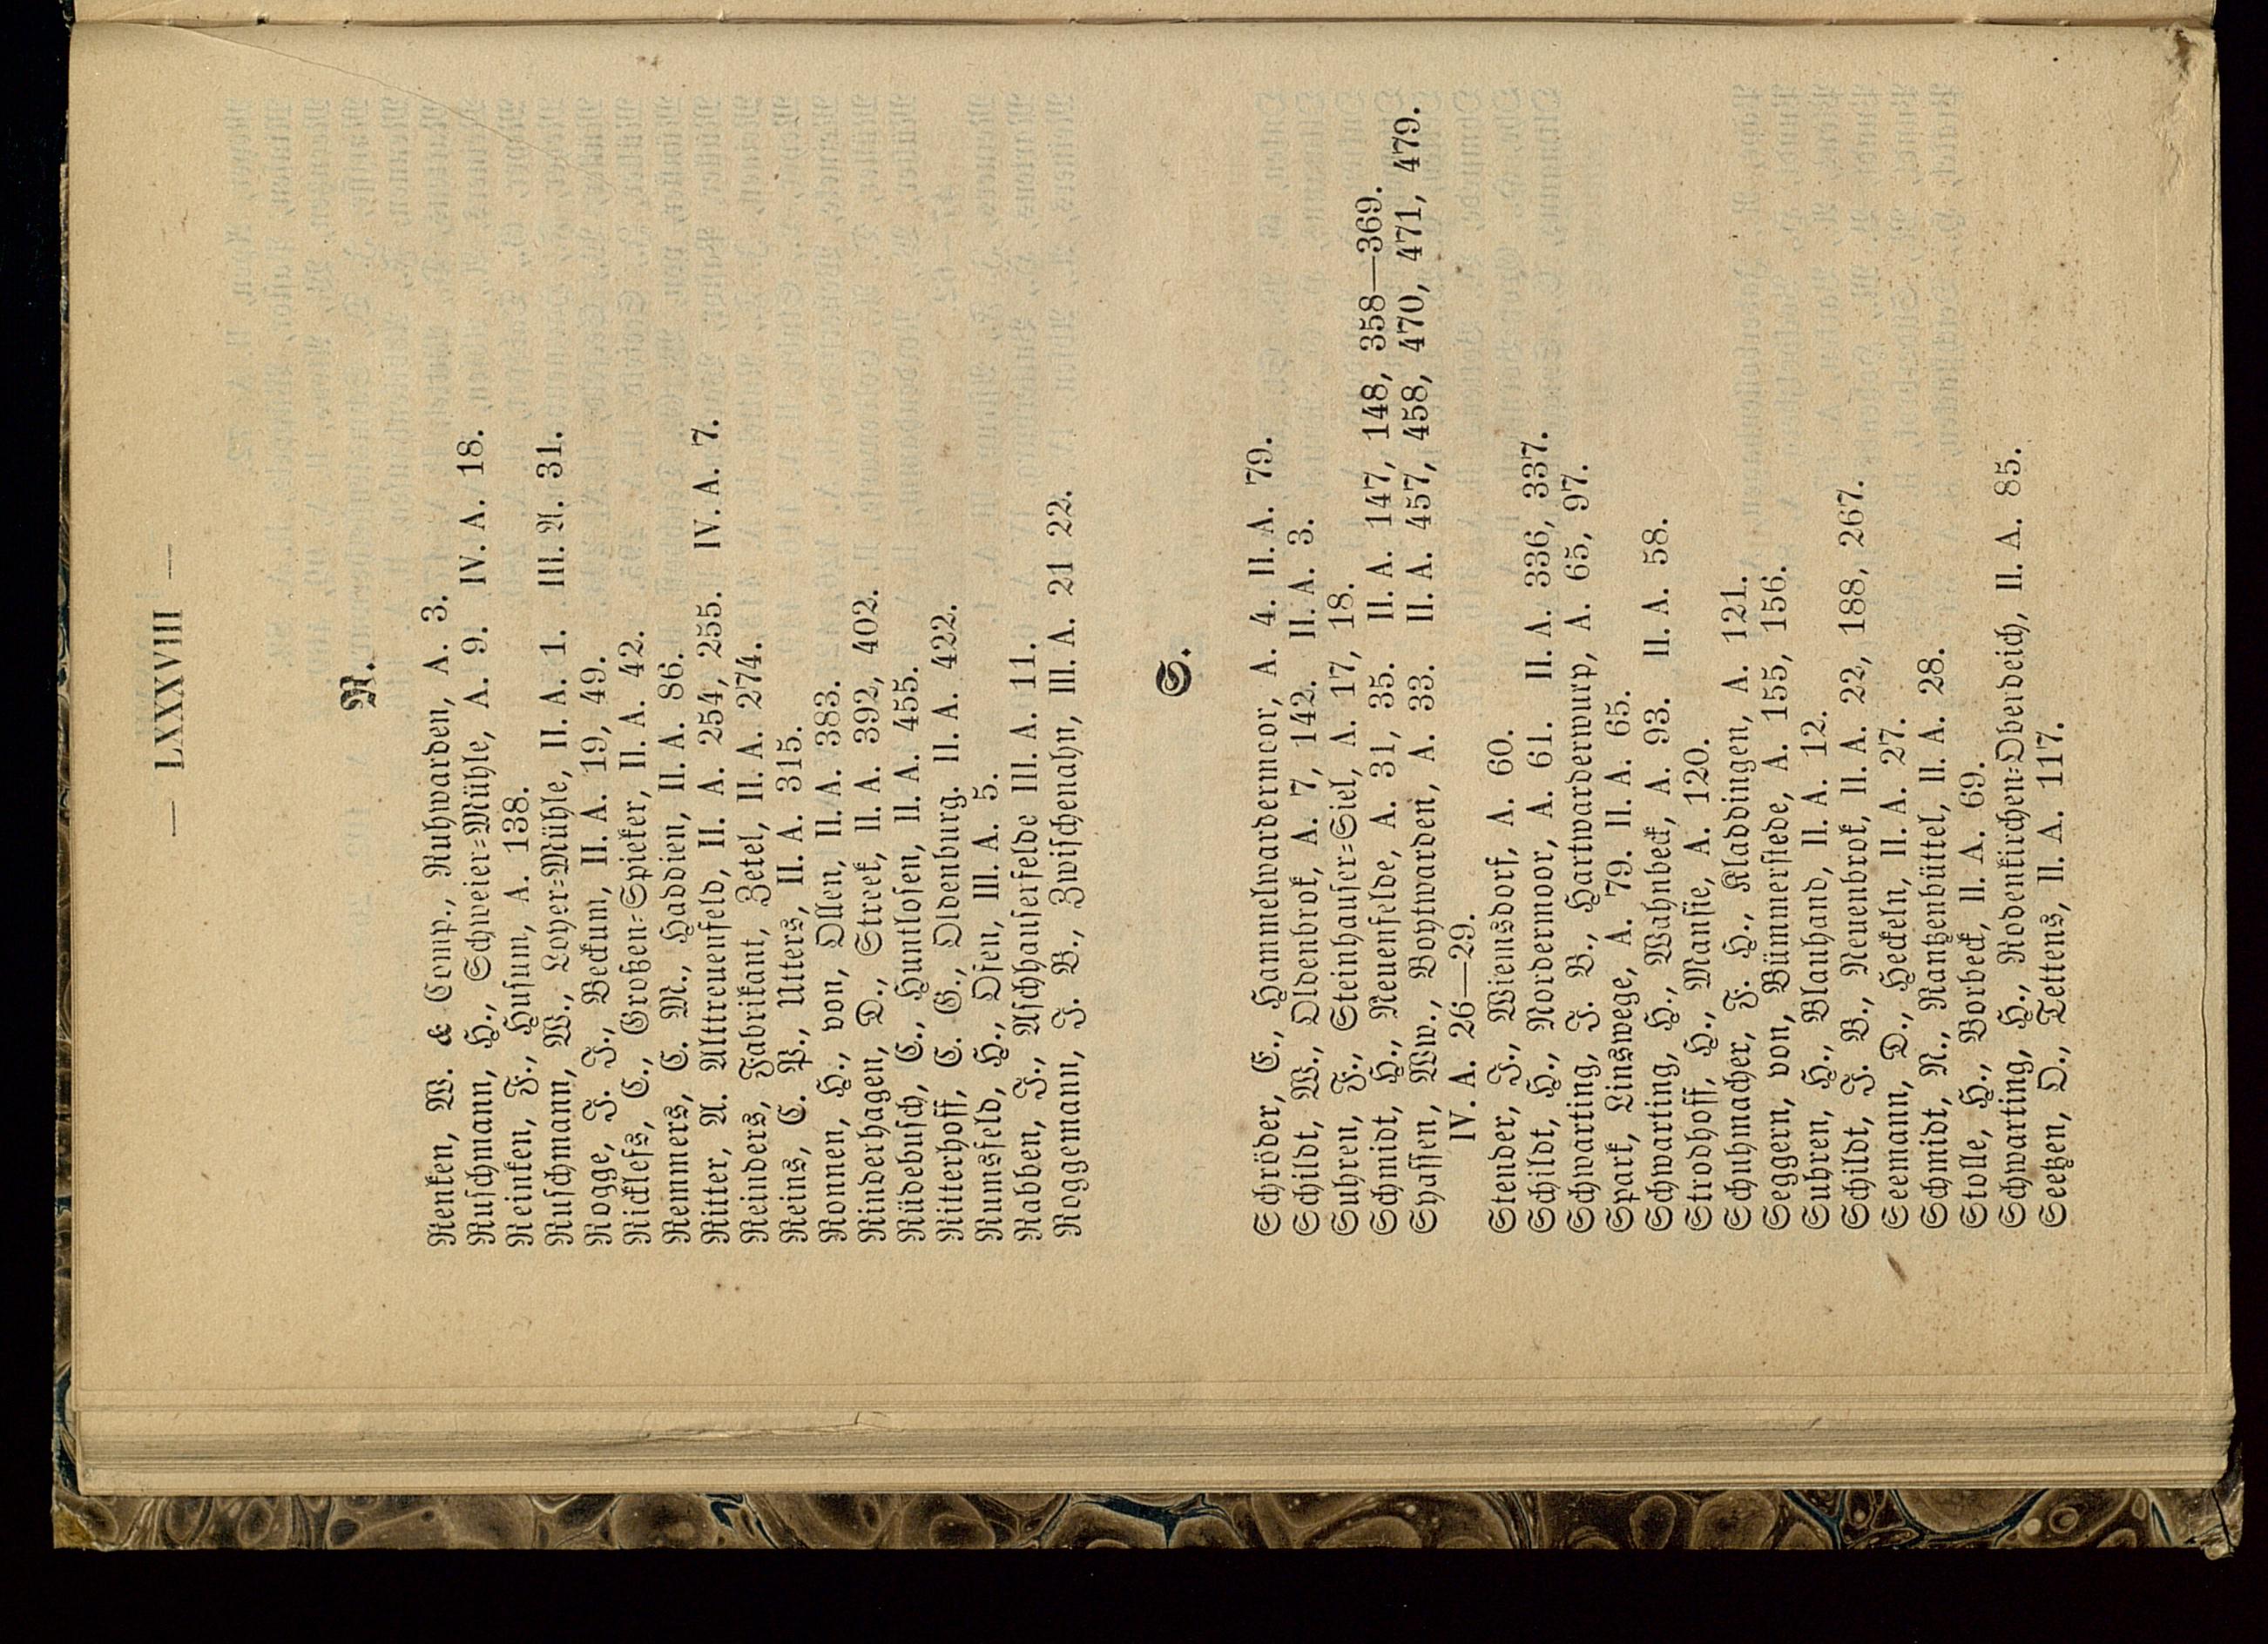 — LXXVIII —
R.
Renken, W. & Comp., Ruhwarden, A. 3.
Ruschmann, H., Schweier-Mühle, A. 9. IV. A. 18.
Reinken, F., Husum, A. 138.
Ruschmann, W., Loyer-Mühle, II. A. 1. III. A. 31.
Rogge, J. J., Beckum, II. A. 19, 49.
Ricklefs, C., Großen-Spieker, II. A. 42.
Remmers, C. M., Haddien, II. A. 86.
Ritter, A. Alttreuenfeld, II. A. 254, 255. IV. A. 7.
Reinders, Fabrikant, Zetel, II. A. 274.
Reins, C. P., Uters, II. A. 315.
Ronnen, H., von, Ollen, II. A. 383.
Rinderhagen, D., Streek, II. A. 392, 402.
Rüdebusch, C., Huntlosen, II. A. 455.
Ritterhoff, C. G., Oldenburg. II. A. 422.
Rumsfeld, H., Osen, III. A. 5.
Rabben, J., Aschhauserfelde III. A. 11.
Roggemann, J. B., Zwischenahn, III. A. 21 22.
S.
Schröder, E., Hammelwardermoor, A. 4. II. A. 79.
Schildt, W., Oldenbrok, A. 7, 142. II. A. 3.
Suhren, F., Steinhauser-Siel, A. 17, 18.
Schmidt, H., Neuenfelde, A. 31, 35. II. A. 147, 148, 358—369.
Spassen, Ww., Boytwarden, A. 33. II. A. 457, 458, 470, 471, 479.
IV. A. 26—29.
Stender, J., Wiemsdorf, A. 60.
Schildt, H., Nordermoor, A. 61. II. A. 336, 337.
Schwarting, J. B., Hartwarderwurp, A. 65, 97.
Spark, Linswege, A. 79. II. A. 65.
Schwarting, H., Wahnbeck, A. 93. II. A. 58.
Strodhoff, H., Mansie, A. 120.
Schuhmacher, F. H., Kladdingen, A. 121.
Seggern, von, Bümmerstede, A. 155, 156.
Suhren, H., Blauhand, II. A. 12.
Schildt, J. B., Neuenbrok, II. A. 22, 188, 267.
Seemann, D., Heckeln, II. A. 27.
Schmidt, N., Ranzenbüttel, II. A. 28.
Stolle, H., Vorbeck, II. A. 69.
Schwarting, H., Rodenkirchen-Oberdeich, II. A. 85.
Seetzen, O., Tettens, II. A. 117.